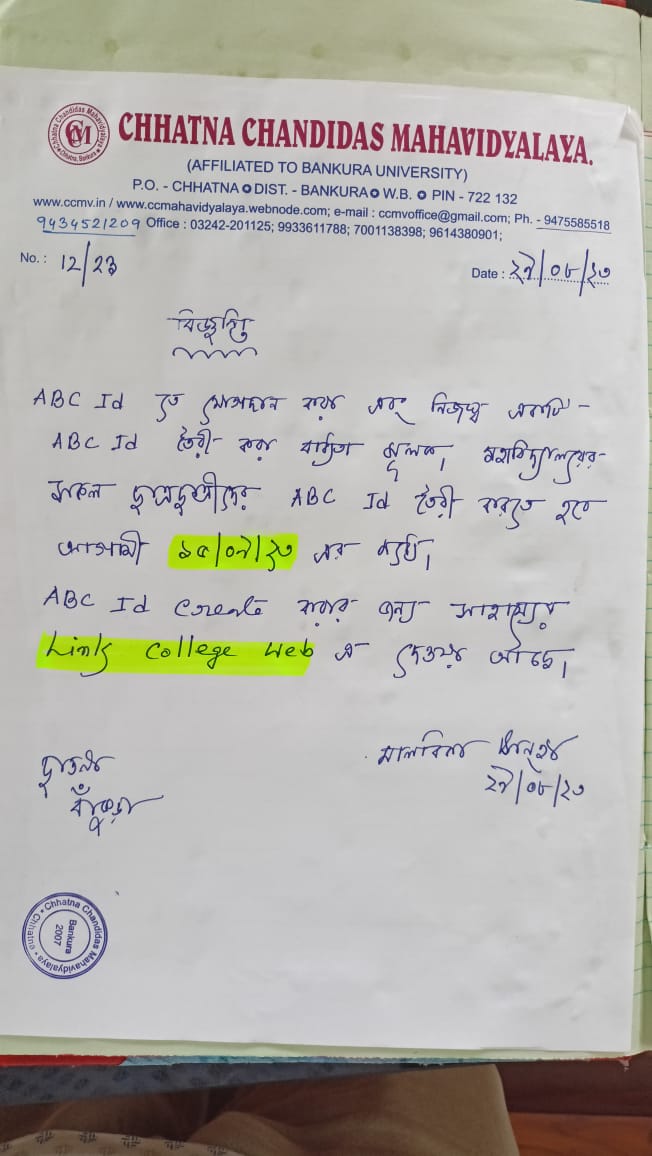 CHHATNA CHANDIDAS MAHAVIDYALAYA.
(AFFILIATED TO BANKURA UNIVERSITY)
P.O. - CHHATNA DIST. - BANKURA W.B. PIN - 722 132
www.ccmv.in / www.ccmahavidyalaya.webnode.com; e-mail : ccmvoffice@gmail.com; Ph. - 9475585518
9434521209 Office : 03242-201125; 9933611788; 7001138398; 9614380901;
No. : 12/23 Date : ২৯/০৮/২৩
বিজ্ঞপ্তি
ABC Id তে যোগদান করা এবং নিজস্ব একটি
ABC Id তৈরী করা বাধ্যতা মূলক। মহাবিদ্যালয়ের
সকল ছাত্রছাত্রীদের ABC Id তৈরী করতে হবে
আগামী ১৫/০৯/২৩ এর মধ্যে।
ABC Id create করার জন্য সাহায্যের
Link College Web এ দেওয়া আছে।
ছাতনা
বাঁকুড়া
২৯/০৮/২৩
Chhatna Chandidas Mahavidyalaya
Chhatna
Bankura
2007